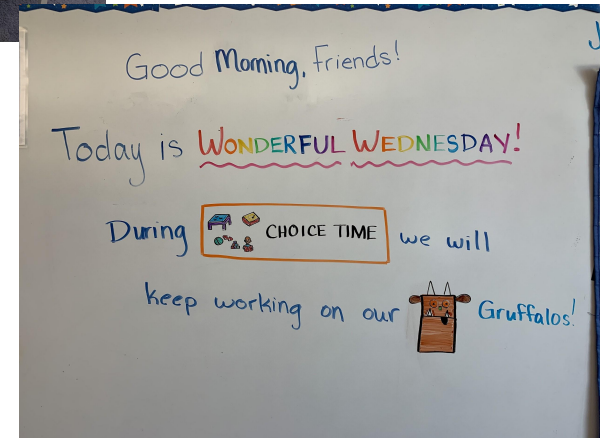 Good Morning, Friends!
Today is WONDERFUL WEDNESDAY!
During CHOICE TIME we will
keep working on our Gruffalos!